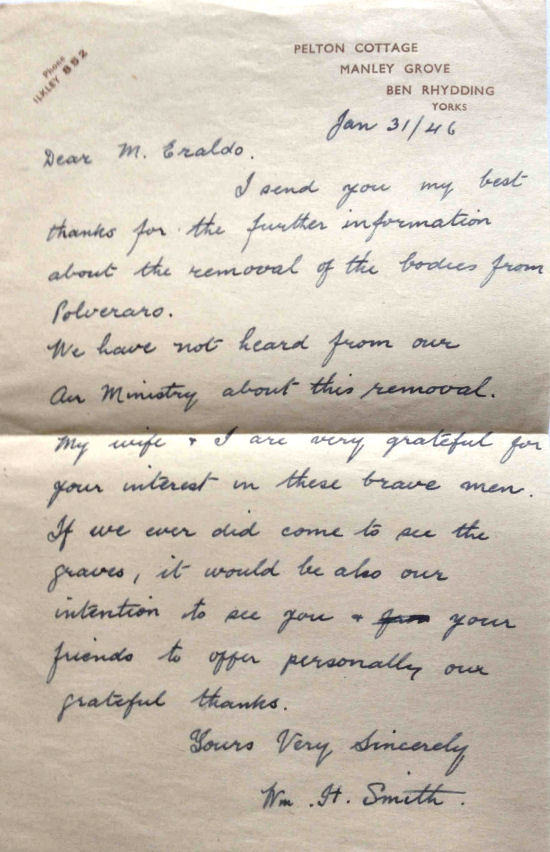 Phone
ILKLEY 852
PELTON COTTAGE
MANLEY GROVE
BEN RHYDDING
YORKS
Jan 31/46
Dear M. Eraldo.
I send you my best
thanks for the further information
about the removal of the bodies from
Polveraro.
We have not heard from our
Air Ministry about this removal.
My wife + I are very grateful for
your interest in these brave men.
If we ever did come to see the
graves, it would be also our
intention to see you + your
friends to offer personally our
grateful thanks.
Yours Very Sincerely
Wm. H. Smith.